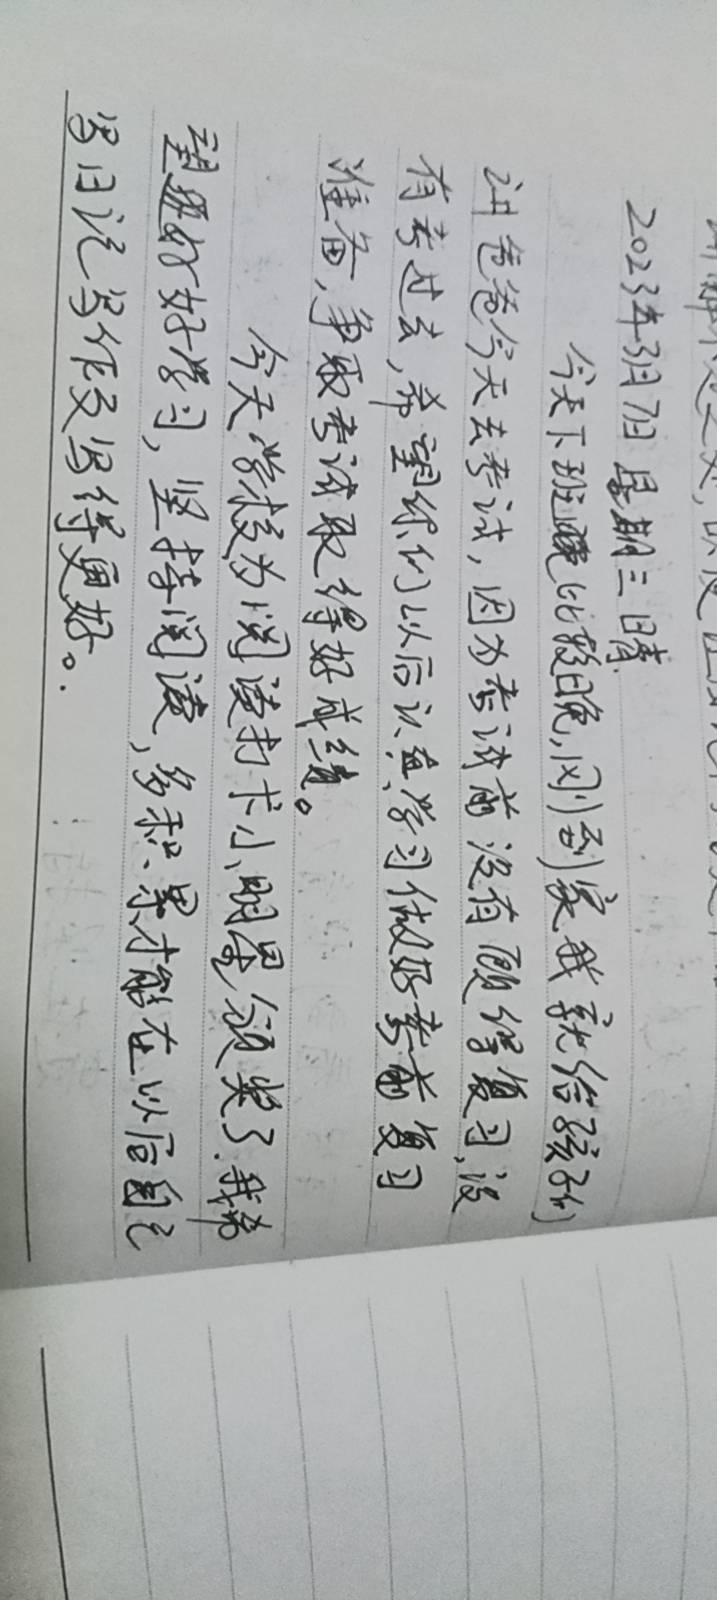 2023年3月7日 星期三 晴
今天下班醒比较晚,刚到家我就给孩子们
讲爸爸今天去考试,因为考试前没有顾得复习,没
有考过去,希望你们以后认真学习做好考前复习
准备,争取考试取得好成绩。
今天学校为阅读打卡小明星颁奖了.我希
望 好好学习,坚持阅读,多积累才能在以后自己
写日记写作文写得更好。